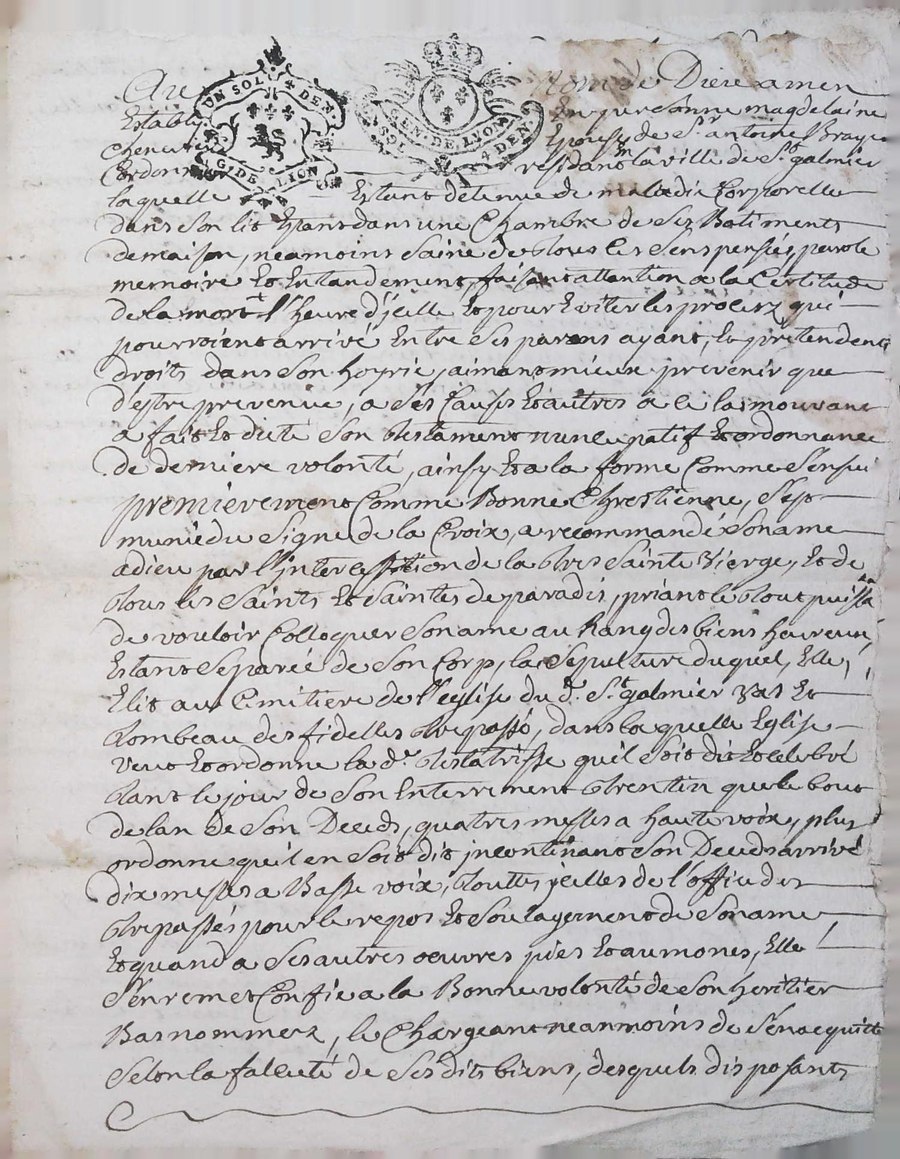 UN SOL 4 DEN.
G. DE LION
GEN. DE LYON
SOL 4 DEN.
Au nom de Dieu amen
Establye en personne magdelaine
Chenev Epouse de Sr. antoine
Cordonnier residant en la ville de St. galmier
laquelle Estant detenue de maladie Corporelle
dans son lit Estant dans une Chambre de ses Batiments
de maison, neamoins saine de tous les sens pensés, parole
memoire Et Entandement, faisant attantion a la Certitude
de la mort & l'heure d'jcelle Et pour Eviter les procerz qui
pourroient arrivé Entre ses parans ayant, Et prétendent
droits dans son hoyrie, aimant mieux prevenir que
d'estre prevenue, a ses Causes Et autres a ce la mouvant
a fait Et dicté son testament nuncupatif Et ordonnance
de derniere volonté, ainsy Et a la forme comme s'ensui
premierement Comme Bonne Chrestienne, s'est
munie du signe de la Croix, a recommandé son ame
a dieu par l'jntercession de la tres sainte vierge, Et de
tous les saints Et saintes de paradis, priant le tout puissa
de vouloir Colloquer son ame au Rang des biens heureux,
Estant separée de son Corp, la sepulture duquel, Elle,
Elit au Cimitiere de l'eglise du d. St. galmier vas Et
tombeau des fidelles trepassé, dans laquelle Eglise
veut Et ordonne la d. testatrisse qu'il soit dit Et celebré
tant le jour de son Enterrement trentin que le bout
de lan de son Deceds, quatres messes a haute voix, plus
ordonne qu'il en soit dit jncontinant son Deceds arrivé
dix messes a Basse voix, touttes jcelles de l'office des
trepassés pour le repos Et soulagement de son ame,
Et quand a ses autres oeuvres pies Et aumones, Elle
s'en remet Confie a la Bonne volonté de son heritier
Bas nommerz, le Chargeant neanmoins de s'en acquitte
selon la faculté de ses dits biens, desquels disposants